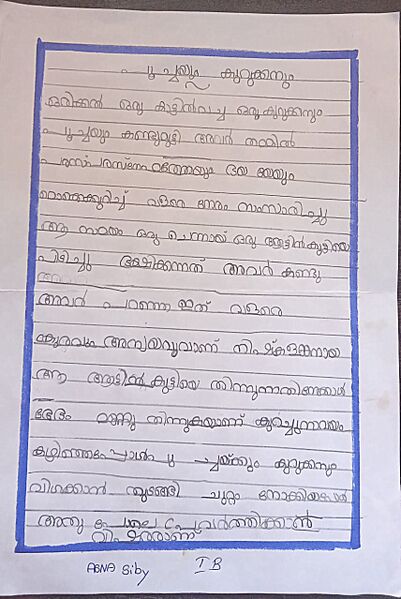 പൂച്ചയും കുറുക്കനും
ഒരിക്കൽ ഒരു കാട്ടിൽവച്ച ഒരു കുറുക്കനും
പൂച്ചയും കണ്ടുമുട്ടി അവർ തമ്മിൽ
പരസ്പരസ്നേഹത്തേയും ദയ യേയും
വളരെ നേരം സംസാരിച്ചു
ആ സമയം ഒരു ചെന്നായ് ഒരു ആട്ടിൻകുട്ടിയെ
പിടിച്ചു ഭക്ഷിക്കുന്നത് അവർ കണ്ടു
അവർ പറഞ്ഞു ഇത് വളരെ
ക്രൂരവും അന്യായവുവാണ് നിഷ്കളങ്കനായ
ആ ആട്ടിൻ കുട്ടിയെ തിന്നുന്നതിനേക്കാൾ
ഭേദം മണ്ണു തിന്നുകയാണ് കുറച്ചുസമയം
കഴിഞ്ഞപ്പോൾ പൂ ച്ചയ്ക്കും കുറുക്കനും
വിശക്കാൻ തുടങ്ങി ചുറ്റും നോക്കിയപ്പോൾ
അതു പോലെ പ്രവർത്തിക്കാൻ
വിഷമമാണ്
ABNA Siby I B